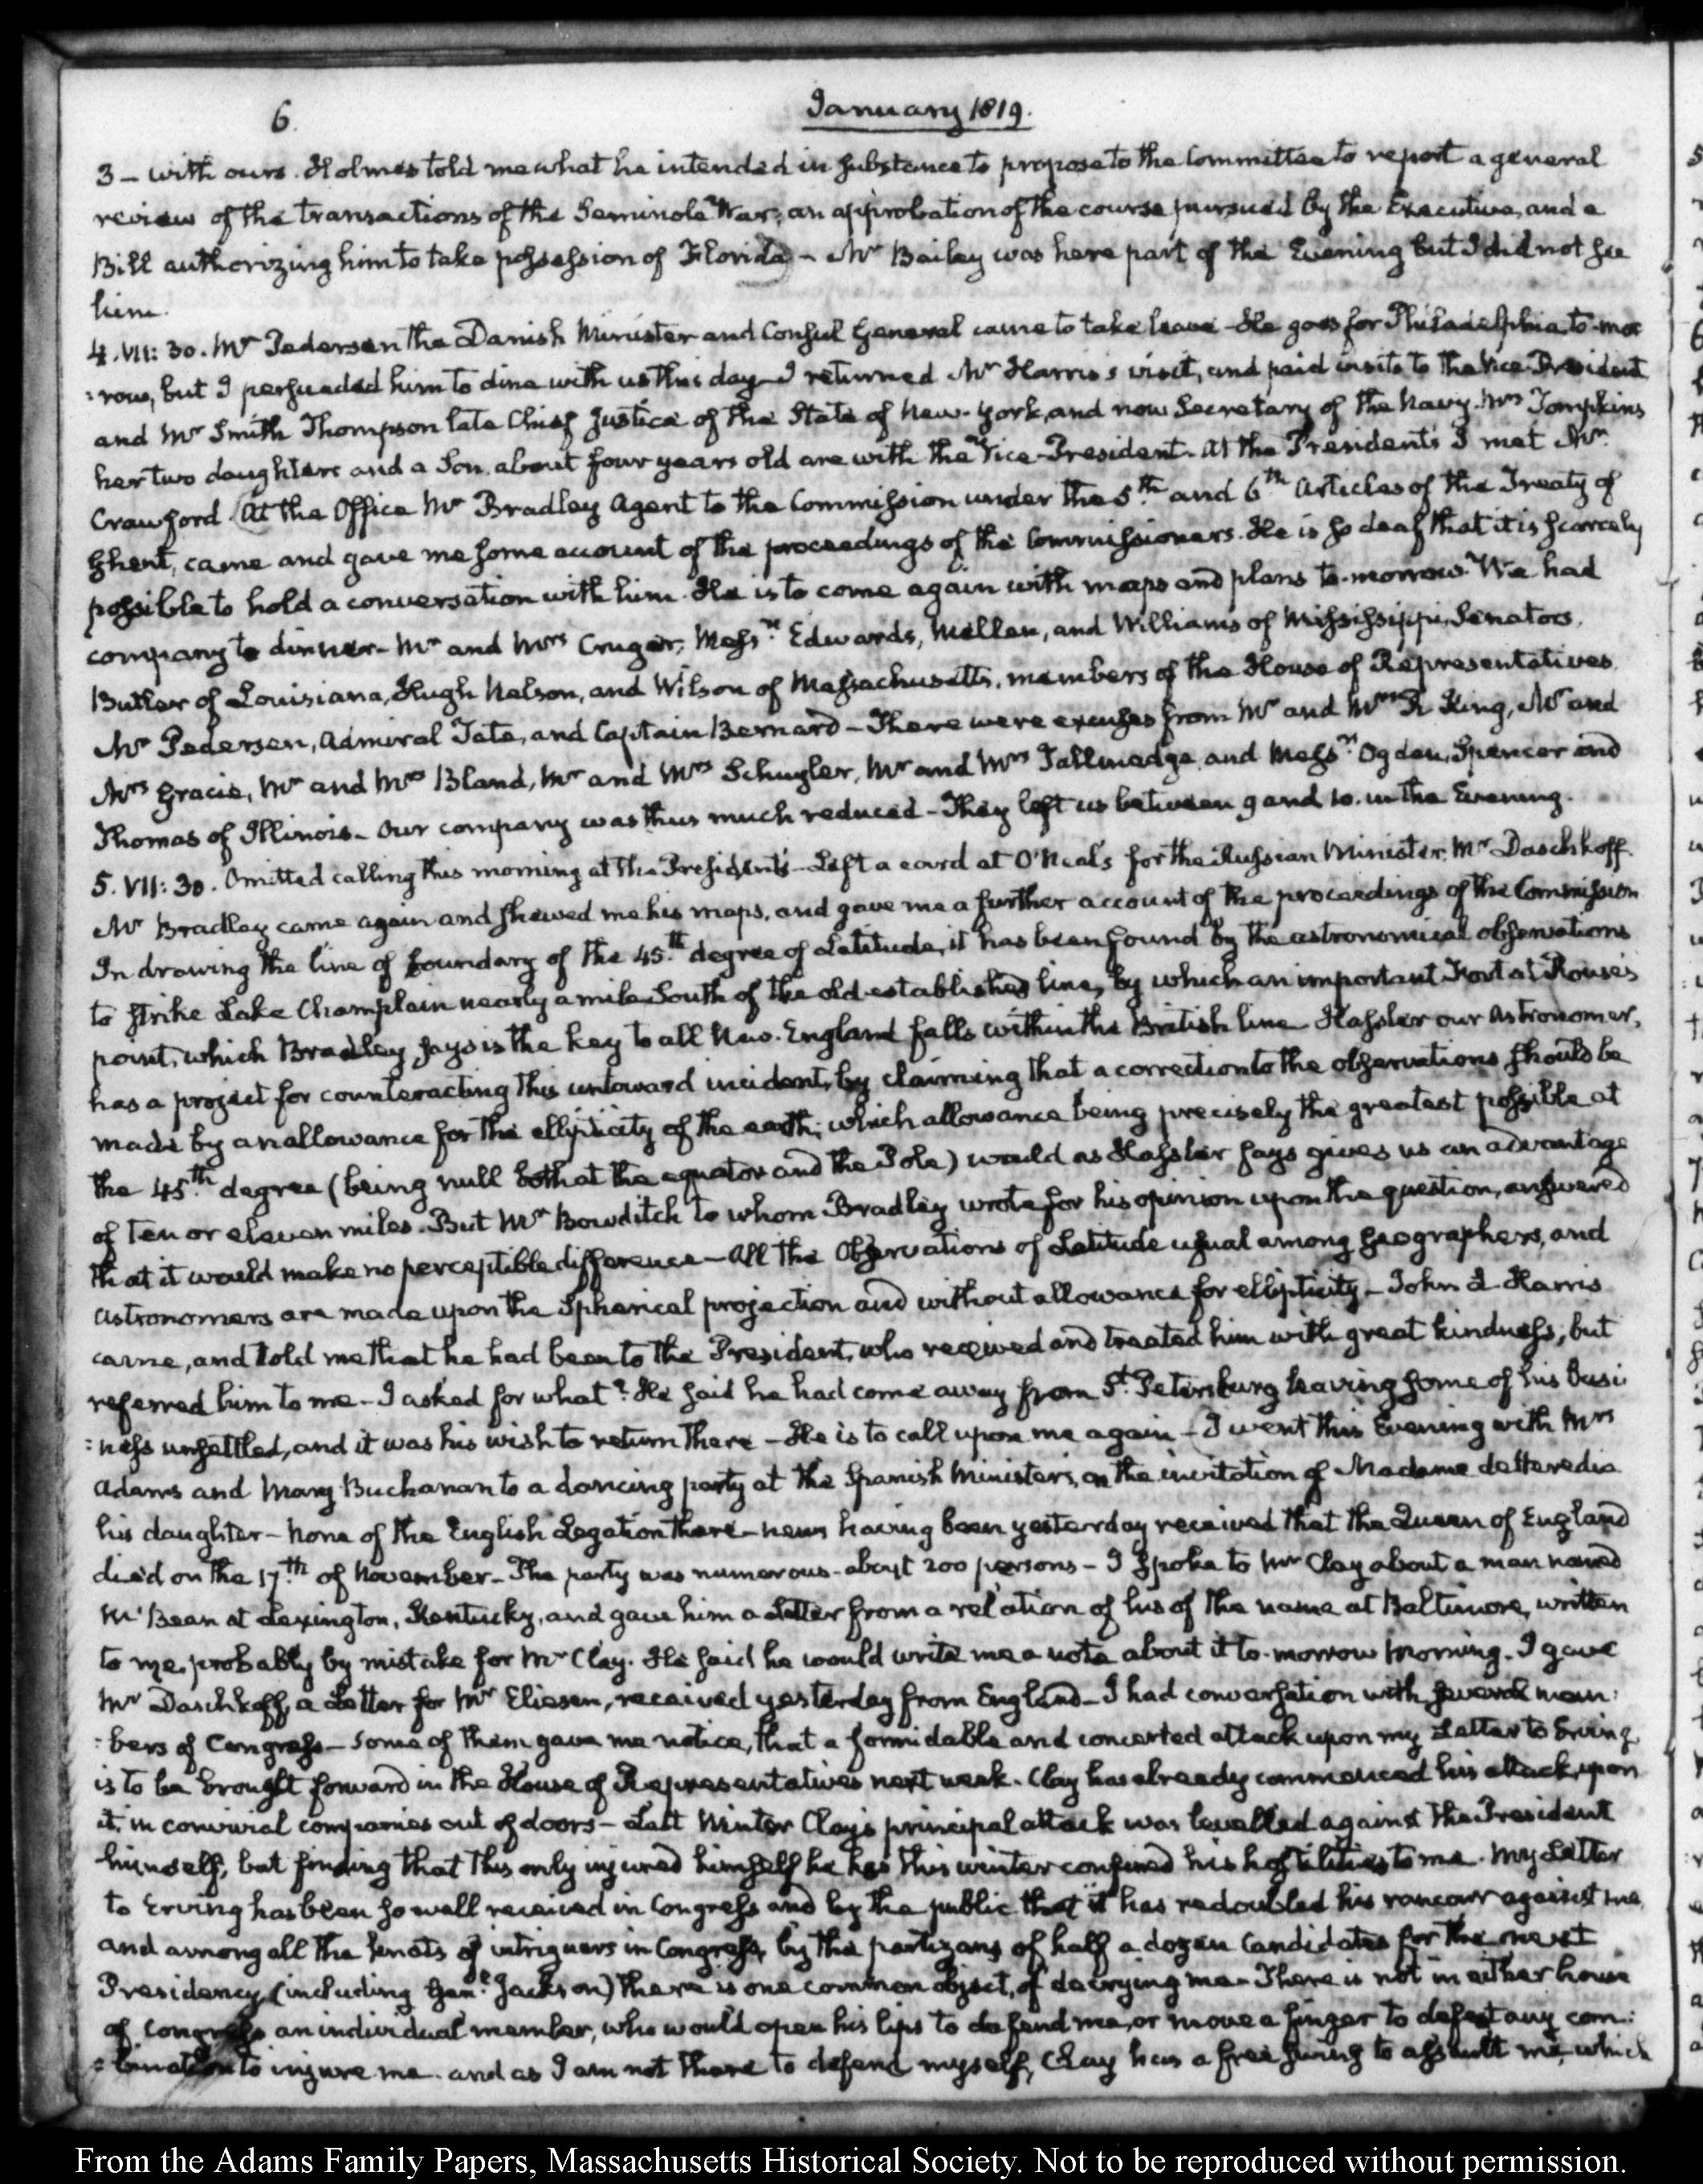 6.
January 1819.
3 – with ours. Holmes told me what he intended in substance to propose to the Committee to report a general
review of the transactions of the Seminole War, an approbation of the course pursued by the Executive, and a
Bill authorizing him to take possession of Florida – Mr Bailey was here part of the Evening but I did not see
him.
4. VII: 30. Mr Pedersen the Danish Minister and Consul General came to take leave – He goes for Philadelphia to-mor
:row, but I persuaded him to dine with us this day – I returned Mr Harris's visit, and paid visits to the Vice-President
and Mr Smith Thompson late Chief Justice of the State of New-York, and now Secretary of the Navy. Mrs Tompkins
her two daughters and a Son about four years old are with the Vice-President. At the President's I met Mr
Crawford (At the Office Mr Bradley Agent to the Commission under the 5th and 6th Articles of the Treaty of
Ghent, came and gave me some account of the proceedings of the Commissioners. He is so deaf that it is scarcely
possible to hold a conversation with him. He is to come again with maps and plans to-morrow. We had
company to dinner – Mr and Mrs Cruger, Messrs Edwards, Mellen, and Williams of Mississippi, Senators,
Butler of Louisiana, Hugh Nelson, and Wilson of Massachusetts, members of the House of Representatives
Mr Pedersen, Admiral Tate, and Captain Bernard – There were excuses from Mr and Mrs R King, Mr and
Mrs Gracie, Mr and Mrs Bland, Mr and Mrs Schuyler, Mr and Mrs Tallmadge, and Messrs Ogden, Spencer and
Thomas of Illinois – Our company was thus much reduced – They left us between 9 and 10. in the Evening.
5. VII: 30. Omitted calling this morning at the President's – Left a card at O'Neal's for the Russian Minister, Mr Daschkoff.
Mr Bradley came again and shewed me his maps, and gave me a further account of the proceedings of the Commission
In drawing the line of boundary of the 45th degree of Latitude, it has been found by the astronomical observations
to strike Lake Champlain nearly a mile South of the old established line, by which an important Fort at Rouse's
point, which Bradley says is the key to all New-England falls within the British line Hassler our Astronomer,
has a project for counteracting this untoward incident, by claiming that a correction to the observations should be
made by an allowance for the ellipticity of the earth; which allowance being precisely the greatest possible at
the 45th degree (being null both at the equator and the Pole) would as Hassler says gives us an advantage
of ten or eleven miles. But Mr Bowditch to whom Bradley wrote for his opinion upon the question, answered
that it would make no perceptible difference – All the Observations of Latitude usual among geographers, and
astronomers are made upon the Spherical projection and without allowance for ellipticity – John L Harris
came, and told me that he had been to the President, who received and treated him with great kindness, but
referred him to me – I asked for what? He said he had come away from St Petersburg leaving some of his busi
:ness unsettled, and it was his wish to return there – He is to call upon me again – (I went this Evening with Mrs
Adams and Mary Buchanan to a dancing party at the Spanish Minister's, on the invitation of Madame de Heredia
his daughter – None of the English Legation there – news having been yesterday received that the Queen of England
died on the 17th of November – The party was numerous – about 200 persons – I spoke to Mr Clay about a man named
McBean at Lexington, Kentucky, and gave him a Letter from a relation of his of the name at Baltimore, written
to me, probably by mistake for Mr Clay. He said he would write me a note about it to-morrow morning. I gave
Mr Daschkoff, a Letter for Mr Eliesen, received yesterday from England – I had conversation with several mem:
:bers of Congress – Some of them gave me notice, that a formidable and concerted attack upon my Letter to Erving,
is to be brought forward in the House of Representatives next week. Clay has already commenced his attack upon
it, in convivial companies out of doors – Last Winter Clay's principal attack was levelled against the President
himself, but finding that this only injured himself he has this winter confined his hostilities to me. My Letter
to Erving has been so well received in Congress and by the public that it has redoubled his rancour against me,
and among all the knots of intriguers in Congress, by the partizans of half a dozen Candidates for the next
Presidency (including Genl Jackson) there is one common object, of decrying me – There is not in either house
of Congress an individual member, who would open his lips to defend me, or move a finger to defeat any com:
:bination to injure me. and as I am not there to defend myself, Clay has a free swing to assault me, which
From the Adams Family Papers, Massachusetts Historical Society. Not to be reproduced without permission.